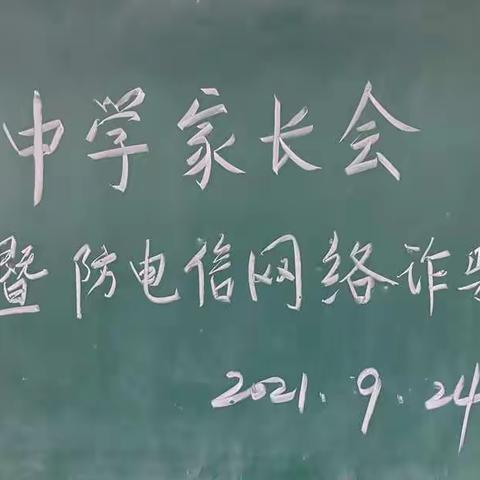 中学家长会
暨防电信网络诈
2021.9.24